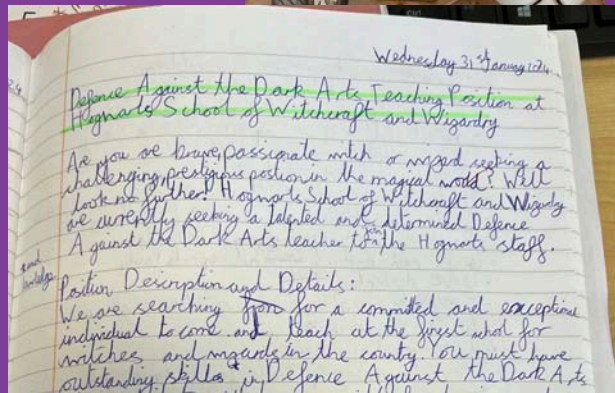 Wednesday 31st January 2024
Defence Against the Dark Arts Teaching Position at
Hogwarts School of Witchcraft and Wizardry
Are you are brave, passionate witch or wizard seeking a
challenging, prestigious postion in the magical world? Well
look no further! Hogwarts School of Witchcraft and Wizardry
are currently seeking a talented and determined Defence
Against the Dark Arts teacher to join the Hogwarts staff.
and
Position Description and Details:
We are searching for a committed and exceptional
individual to come and teach at the finest school for
witches and wizards in the country. You must have
outstanding skills in Defence Against the Dark Arts